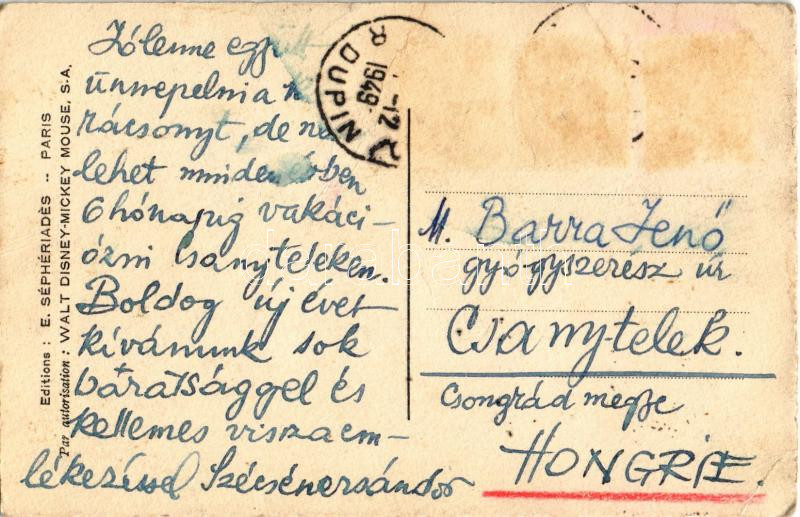 Jó lenne egy
ünnepelni a
rácsonyt, de
lehet minden évben
6 hónapig vakáci-
ózni Csanyteleken.
Boldog új évet
kívánunk sok
barátsággel és
kellemes visszaem-
lékezéssel
Editions : E. SÉPHÉRIADÈS -- PARIS
Par autorisation : WALT DISNEY-MICKEY MOUSE. S.A.
1949
M. Barra Jenő
gyógyszerész úr
Csany-telek.
Csongrád megye
HONGRIE.